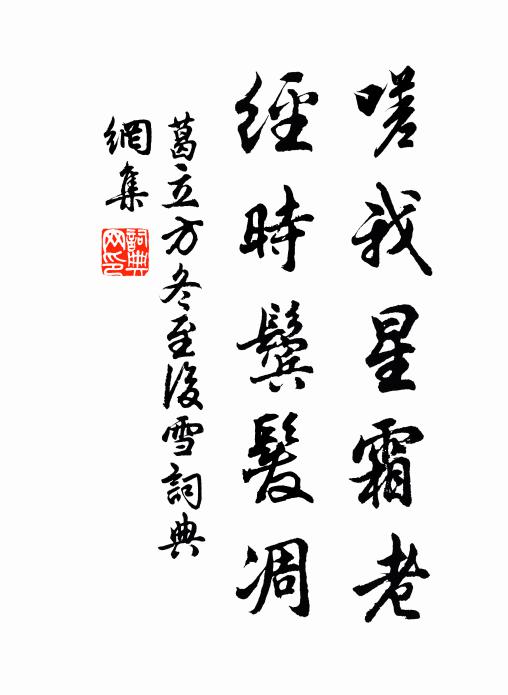 嗟我星霜老
經時鬢髮凋
葛立方冬至後雪詞典
網集
詞典
网印